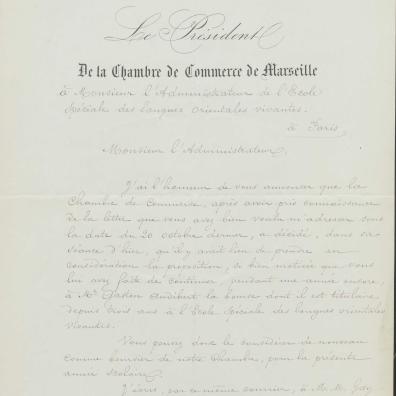 Le Président
De la Chambre de Commerce de Marseille
à Monsieur l'Administrateur de l'Ecole
spéciale des langues orientales vivantes.
à Paris
Monsieur l'Administrateur,
J'ai l'honneur de vous annoncer que la
Chambre de Commerce, après avoir pris connaissance
de la lettre que vous avez bien voulu m'adresser sous
la date du 20 octobre dernier, a décidé, dans sa
séance d'hier, qu'il y avait lieu de prendre en
considération la proposition, si bien motivée que vous
lui avez faite de continuer, pendant une année encore,
à Mr. Gaston Audibert la bourse dont il est titulaire
depuis trois ans à l'Ecole spéciale des langues orientales
vivantes.
Vous pouvez donc le considérer de nouveau
comme boursier de notre Chambre, pour la présente
année scolaire.
J'écris, par ce même courrier, à M. M.